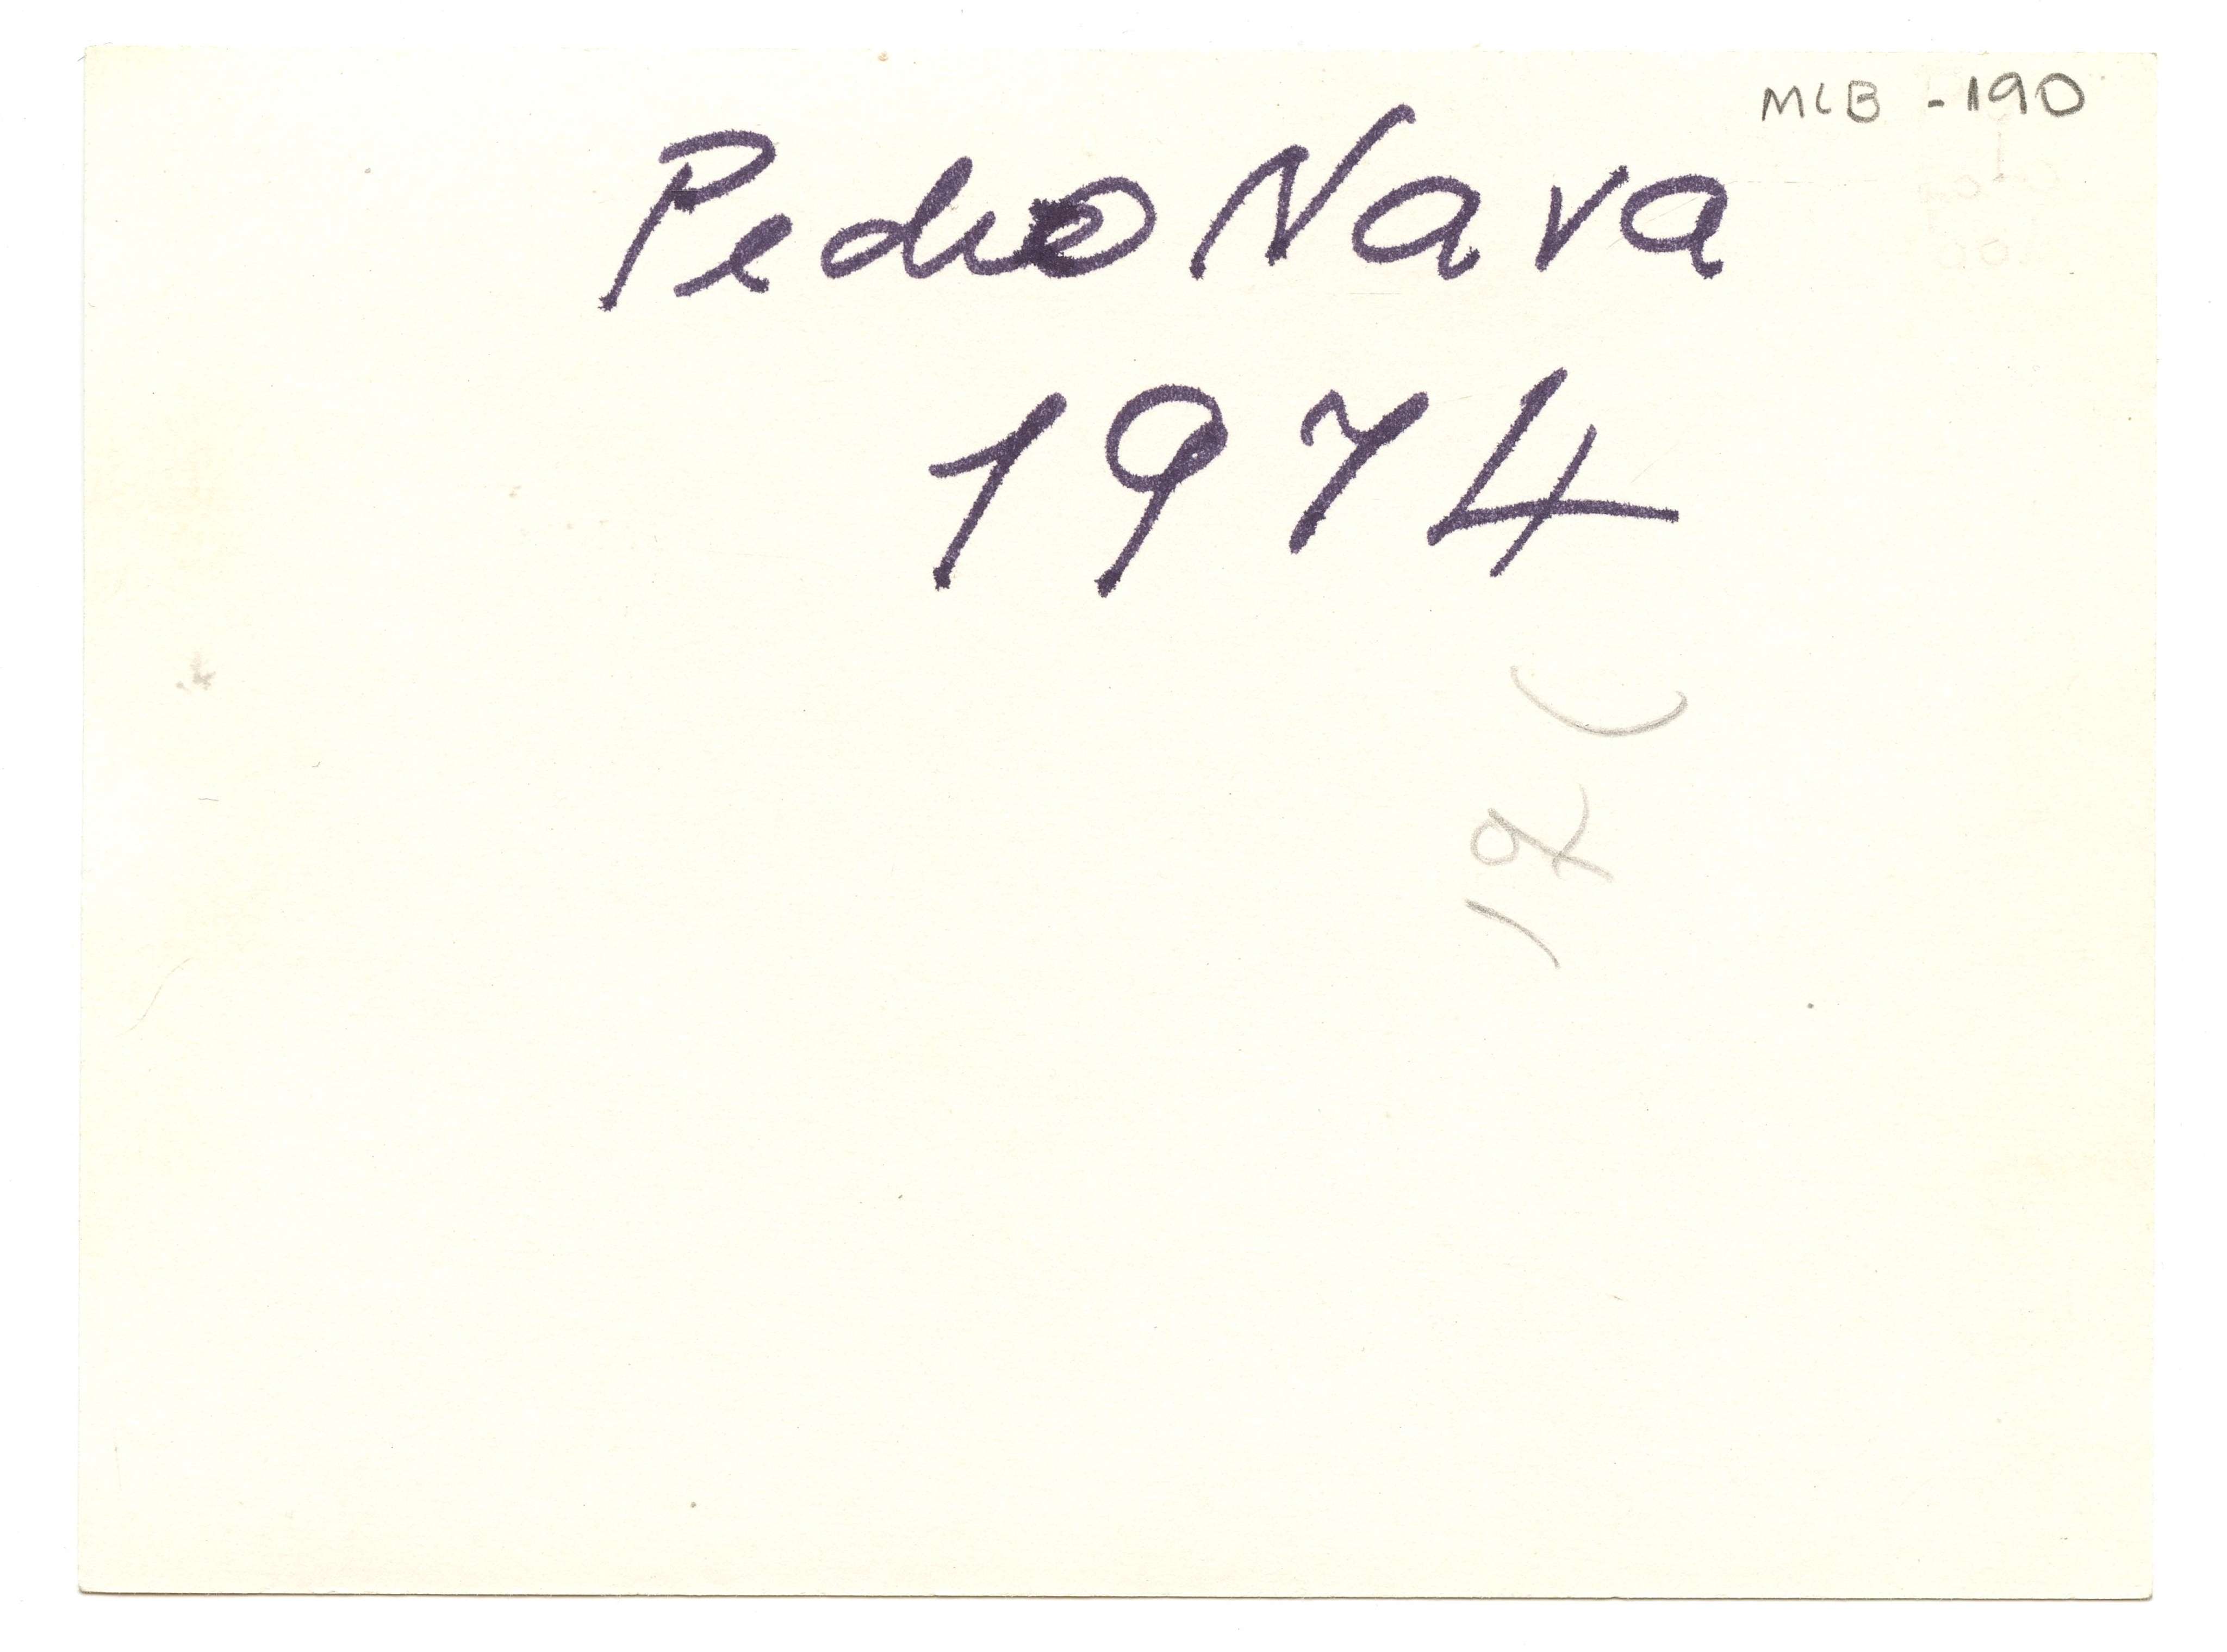 MLB - 190
Pedro Nava
1974